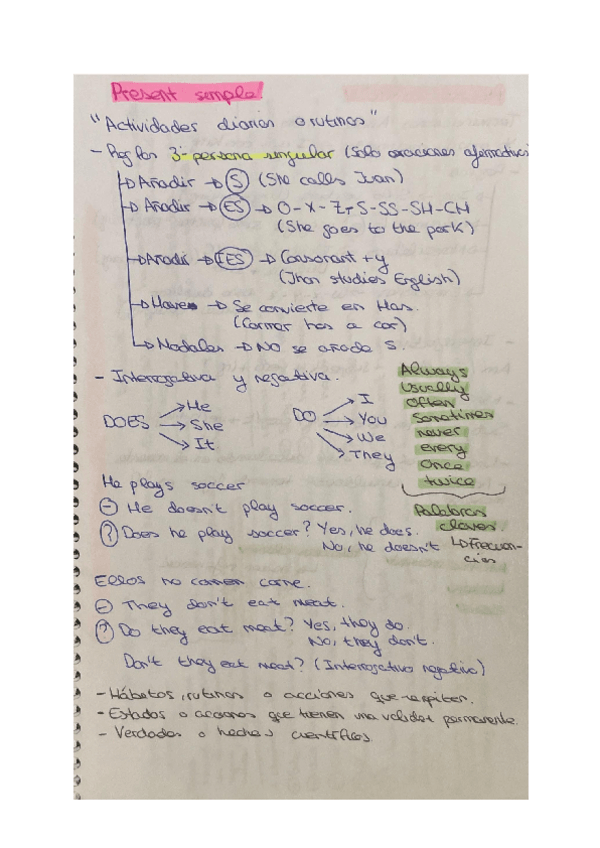 Present simple.
"Actividades diarias o rutinas"
- Reglas 3ª persona singular (Solo oraciones afirmativas
Añadir → S (She calls Juan)
Añadir → ES → O-X-Z, S-SS-SH-CH
(She goes to the park)
Añadir → IES → Consonant + y
(Jhon studies English)
Have → Se convierte en Has.
(Carmer has a car)
Modales → NO se añade S.
- Interrogativa y negativa.
DOES → He
→ She
→ It
DO → I
→ You
→ We
→ They
Always
Usually
Often
Sometimes
never
every
Once
twice
Palabras
claves
↳ Frecuen-
cias
He plays soccer
⊖ He doesn't play soccer.
? Does he play soccer? Yes, he does.
No, he doesn't
Ellos no comen carne.
⊖ They don't eat meat.
? Do they eat meat? Yes, they do.
No, they don't.
Don't they eat meat? (Interrogativo negativo)
- Hábitos, rutinas o acciones que repiten.
- Estados o acciones que tienen una validez permanente.
- Verdades o hechos científicos.